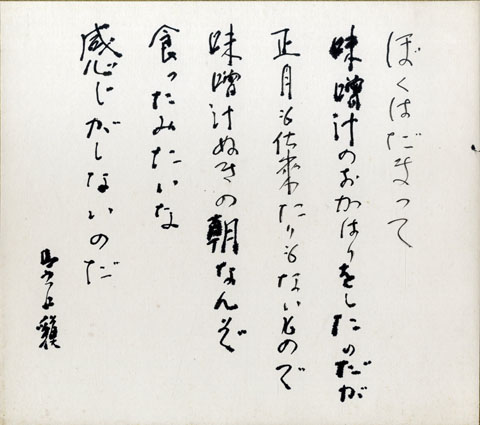 ぼくはだまって
味噌汁のおかはりをしたのだが
正月も仕来たりもないもので
味噌汁ぬきの朝なんぞ
食ったみたいな
感じがしないのだ
山之口貘